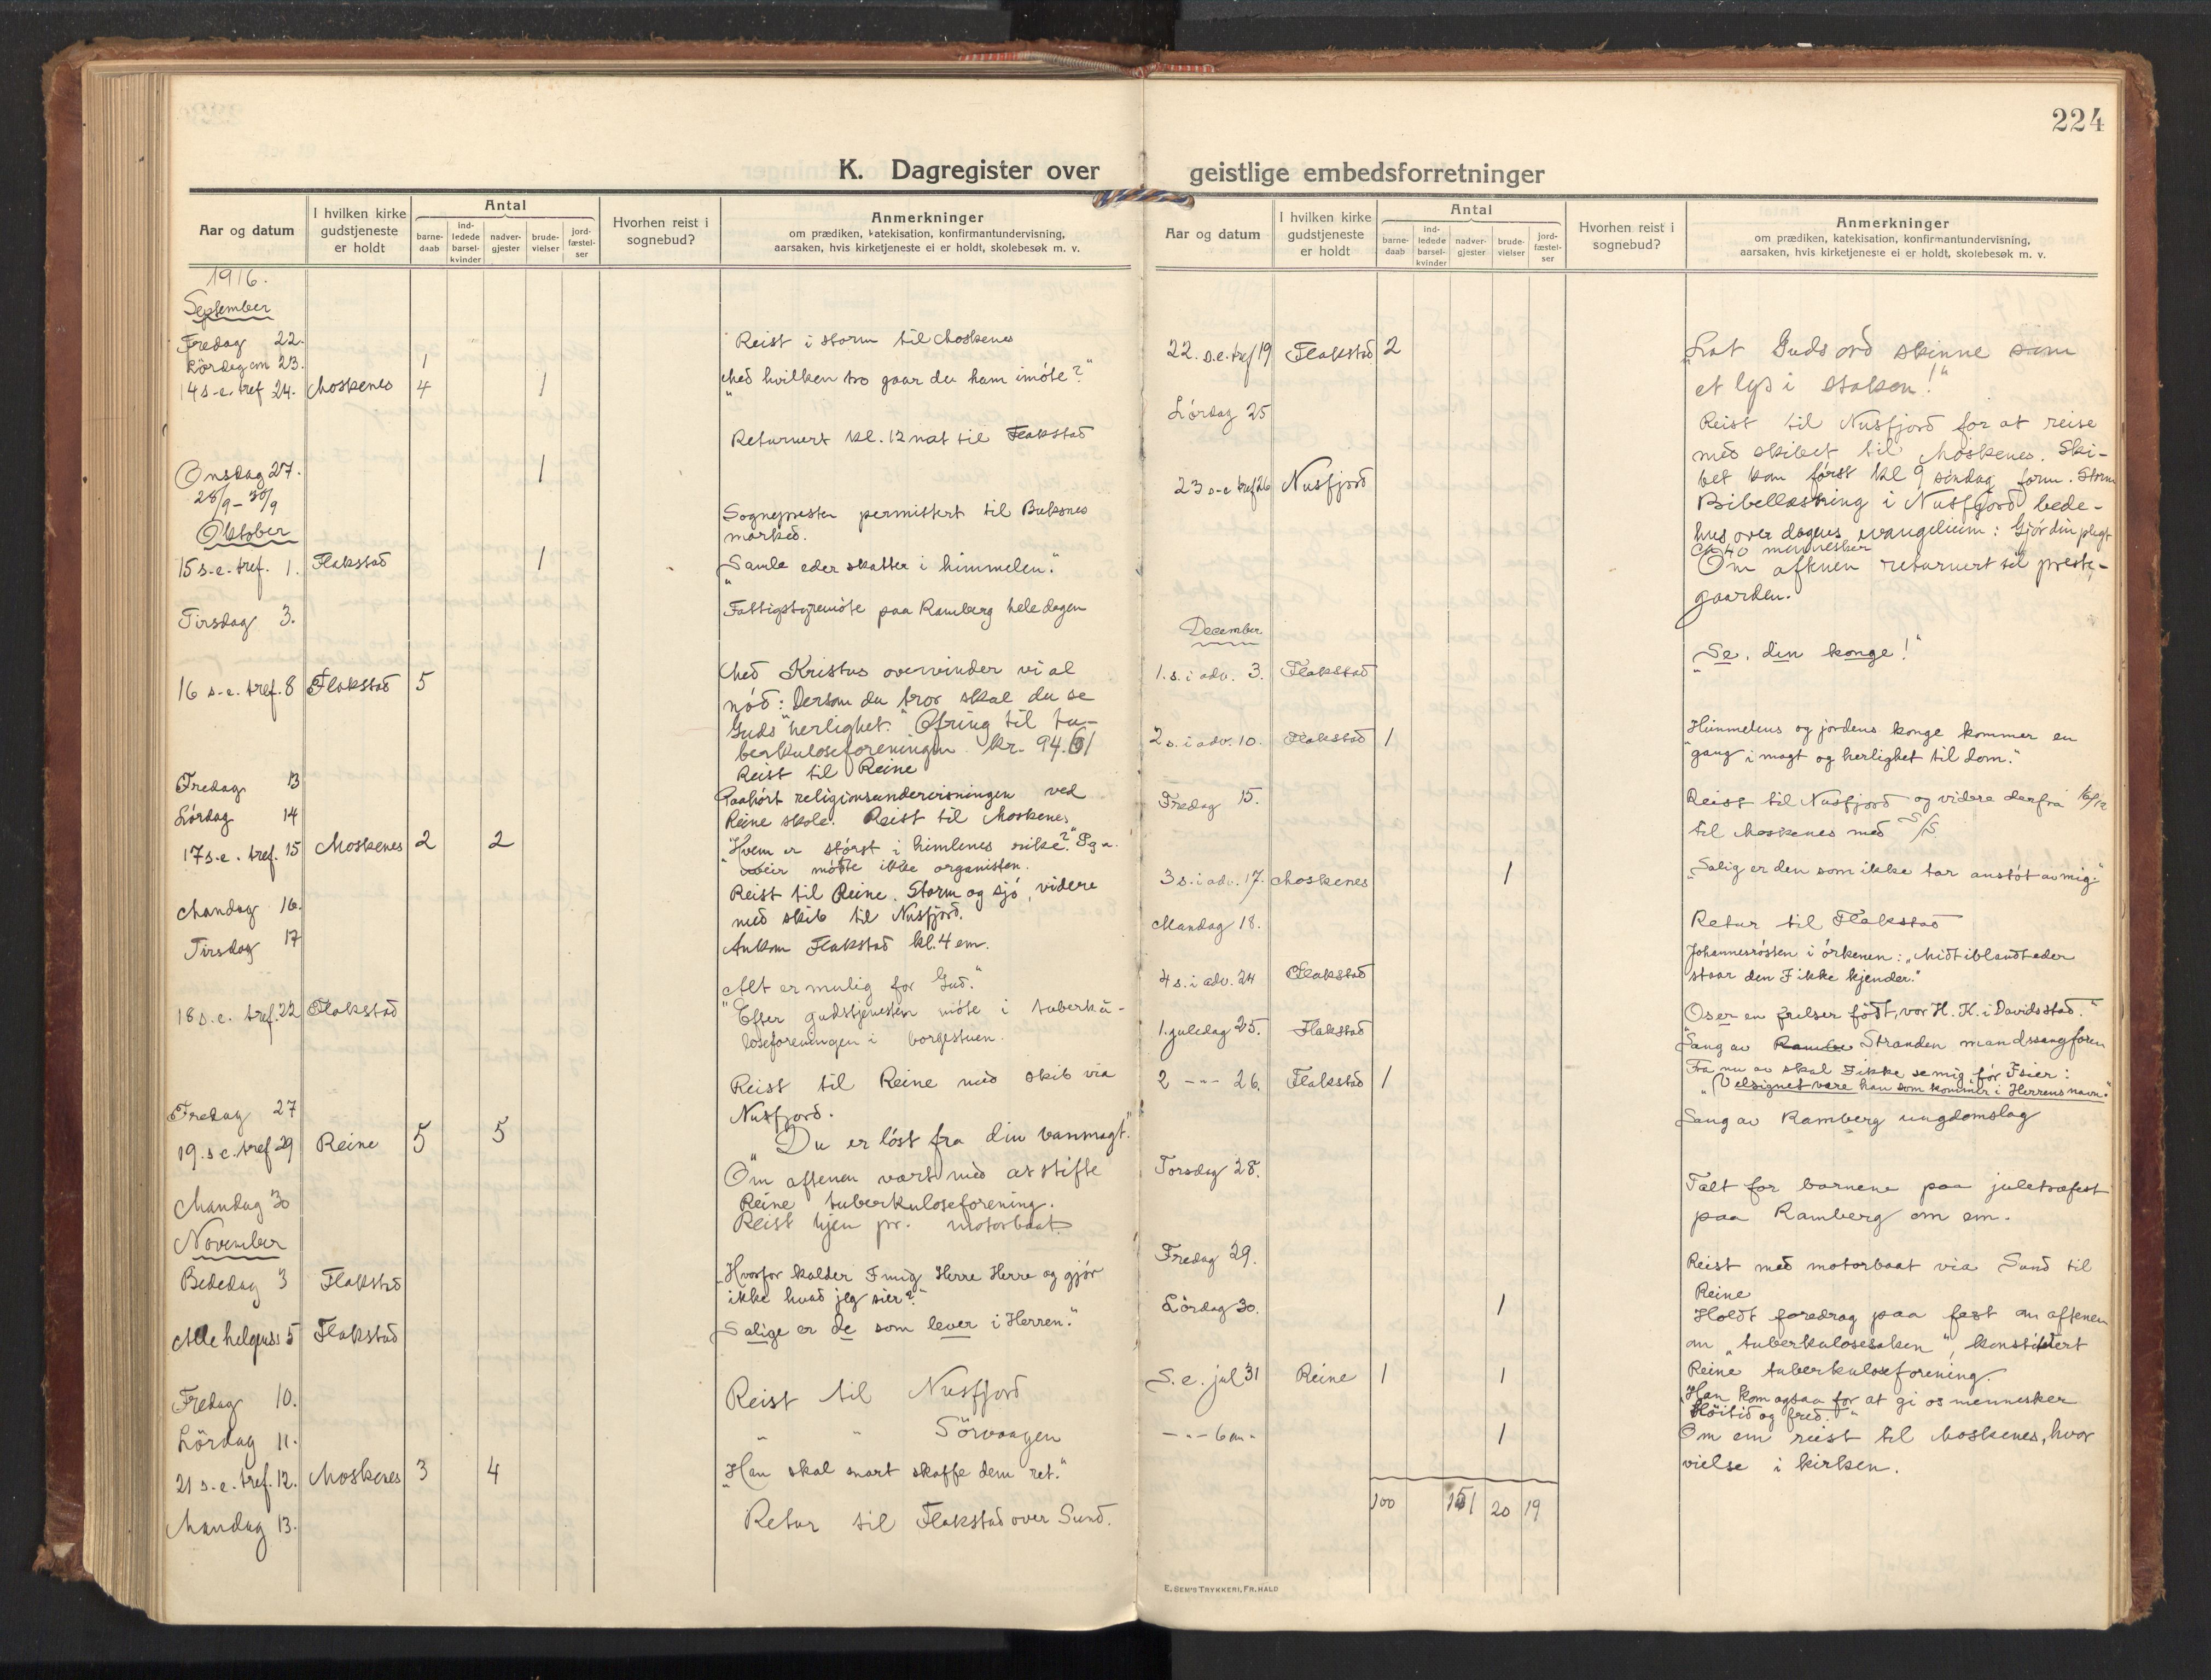 224
K. Dagregister over geistlige embedsforretninger
Aar og datum
I hvilken kirke gudstjeneste er holdt
Antal
barne-daab
ind-ledede barsel-kvinder
nadver-gjester
brude-vielser
jord-fæstel-ser
Hvorhen reist i sognebud?
Anmerkninger
om prædiken, katekisation, konfirmantundervisning,
aarsaken, hvis kirketjeneste ei er holdt, skolebesøk m. v.
1916.
September
Fredag 22. Reist i storm til Moskenes
Lördag em 23. 1
14 s.e. tref 24. Moskenes 4 1 "Med hvilken tro gaar du ham imöte?"
Returnert kl. 12 nat til Flakstad
Onsdag 27. 1
28/9 - 30/9 Sognepresten permittert til Buksnes
marked.
Oktober
15 s.e. tref. 1. Flakstad 1 "Samle eder skatter i himmelen."
Tirsdag 3. Fattigstyremöte paa Ramberg hele dagen
16 s.e. tref. 8 Flakstad 5 Med Kristus overvinder vi al
nöd: Dersom du tror skal du se
Guds herlighet." Ofring til tu-
berkuloseforeningen kr. 94.61
Fredag 13 Reist til Reine
Lördag 14 Paahört religionsundervisningen ved
Reine skole. Reist til Moskenes
17 s.e. tref. 15 Moskenes 2 2 "Hvem er störst i himlenes rike?" Pg a.
veir mötte ikke organisten.
Mandag 16. Reist til Reine. Storm og sjö, videre
med skib til Nusfjord.
Tirsdag 17 Ankom Flakstad kl. 4 em.
18 s.e. tref. 22 Flakstad "Alt er mulig for Gud."
Efter gudstjenesten möte i tuberku-
loseforeningen i borgestuen.
Fredag 27 Reist til Reine med skib via
Nusfjord.
19. s e. tref 29 Reine 5 5 "Du er löst fra din vanmagt."
Om aftenen vært med at stifte
Reine tuberkuloseforening.
Mandag 30 Reist hjem pr. motorbaat
November
Bededag 3 Flakstad "Hvorfor kalder I mig Herre Herre og gjör
ikke hvad jeg sier?"
Alle helgens 5 Flakstad Salige er de som lever i Herren."
Fredag 10. Reist til Nusfjord
Lördag 11. " " Sörvaagen
21 s.e. tref. 12. Moskenes 3 4 "Han skal snart skaffe dem ret."
Mandag 13. Retur til Flakstad over Sund.
Aar og datum
I hvilken kirke gudstjeneste er holdt
Antal
barne-daab
ind-ledede barsel-kvinder
nadver-gjester
brude-vielser
jord-fæstel-ser
Hvorhen reist i sognebud?
Anmerkninger
om prædiken, katekisation, konfirmantundervisning,
aarsaken, hvis kirketjeneste ei er holdt, skolebesøk m. v.
22. s.e. tref 19 Flakstad 2 "Lat Guds ord skinne som
et lys i staken!"
Lördag 25 Reist til Nusfjord for at reise
med skibet til Moskenes. Ski-
bet kom först kl 9 söndag form. Storm
23 s.e tref 26 Nusfjord Bibellæsning i Nusfjord bede-
hus over dagens evangelium: Gjör din plegt
ca 40 mennesker
Om aftenen returnert til preste-
gaarden.
December
1. s. i adv. 3. Flakstad "Se, din konge!"
2 s. i adv. 10. Flakstad 1 Himmelens og jordens konge kommer en
gang i magt og herlighet til dom."
Fredag 15. Reist til Nusfjord og videre derfra 16/12
til Moskenes med S/S
3 s. i adv. 17. Moskenes 1 "Salig er den som ikke tar anstöt av mig."
Mandag 18. Retur til Flakstad
4 s. i adv. 24 Flakstad Johannesrösten i örkenen: "Midt iblandt eder
staar den I ikke kjender."
1. juledag 25. Flakstad Os er en frelser födt, vor H. K. i Davids stad."
Sang av Stranden mandssangforen
2 - " - 26. Flakstad 1 Fra nu av skal I ikke se mig för I sier:
"Velsignet være han som kommer i Herrens navn."
Sang av Ramberg ungdomslag
Torsdag 28. Talt for barnene paa juletræfest
paa Ramberg om em.
Fredag 29. Reist med motorbaat via Sund til
Reine
Lördag 30. 1 Holdt foredrag paa fest om aftenen
om "tuberkulosesaken", konstituert
Reine tuberkuloseforening.
S. e. jul 31 Reine 1 1 "Han kom ogsaa for at gi os mennesker
Höitid og fred."
1 Om em reist til Moskenes, hvor
vielse i kirken.
100 151 20 19
E. SEM'S TRYKKERI, FR. HALD